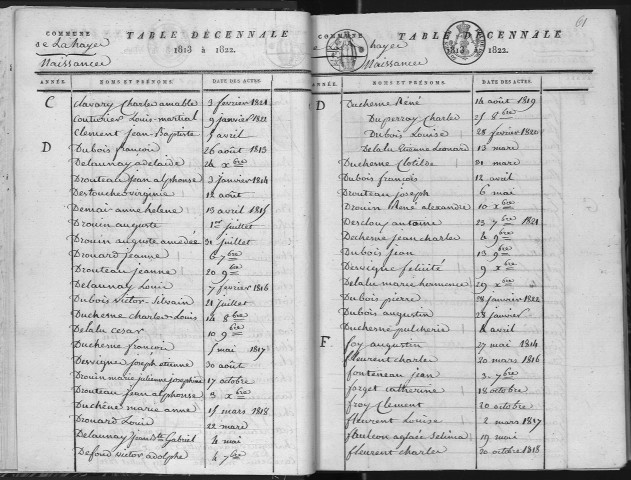 COMMUNE
TABLE DÉCENNALE
de La haye
1813 à 1822.
Naissances
ANNÉE.
NOMS ET PRÉNOMS.
DATE DES ACTES.
C
Clavary Charles amable 3 février 1821
Couturier Louis-martial 9 janvier 1822
Clement Jean-Baptiste 5 avril
D
Dubois françois 26 août 1813
Delaunay adelaide 24 xbre
Drouteau Jean alphonse 3 janvier 1814
Destouches virginie 12 août
Demai anne helene 13 avril 1815
Drouin auguste 1er juillet
Drouin auguste amédée 31 juillet
Drouard jeanne 6 7bre
Drouteau jeanne 20 9bre
Delaunay Louis 7 février 1816
Dubois victor-Silvain 21 juillet
Duchesne charles-Louis 14 8bre
Delalu cesar 10 9bre
Duchesne françois 5 mai 1817
Dervigne joseph etienne 30 août
Drouin marie julienne josephine 17 octobre
Drouteau jean alphonse 3 xbre
Duchêne marie anne 15 mars 1818
Drouard Louis 22 mars
Delaunay Jean Bte Gabriel 4 mai
Defour victor adolphe 4 7bre
61
COMMUNE
TABLE DÉCENNALE
de haye
1813 à 1822.
Naissances
ANNÉE.
NOMS ET PRÉNOMS.
DATE DES ACTES.
D
Duchesne René 14 août 1819
Duperray Charles 25 8bre
Dubois Louise 28 février 1820
Delalu Etienne Leonard 13 mars
Duchesne Clotilde 31 mars
Dubois françois 12 avril
Drouteau joseph 6 mai
Drouin René alexandre 10 xbre
Descloux antoine 23 7bre 1821
Dechesne jean charles 4 9bre
Dubois jean 13 9bre
Dervigne felicité 9 xbre
Delalu marie hermence 29 xbre
Dubois pierre 28 janvier 1822
Dubois augustin 28 janvier
Duchesne pulcherie 8 avril
F
foy augustin 27 mai 1814
fleurent charles 20 mars 1816
fonteneau jean 3 7bre
forget catherine 18 octobre
froy Clement 20 octobre
fleurent Louise 2 mars 1817
fauleon aglaée Selima 19 mai
fleurent charles 30 octobre 1818